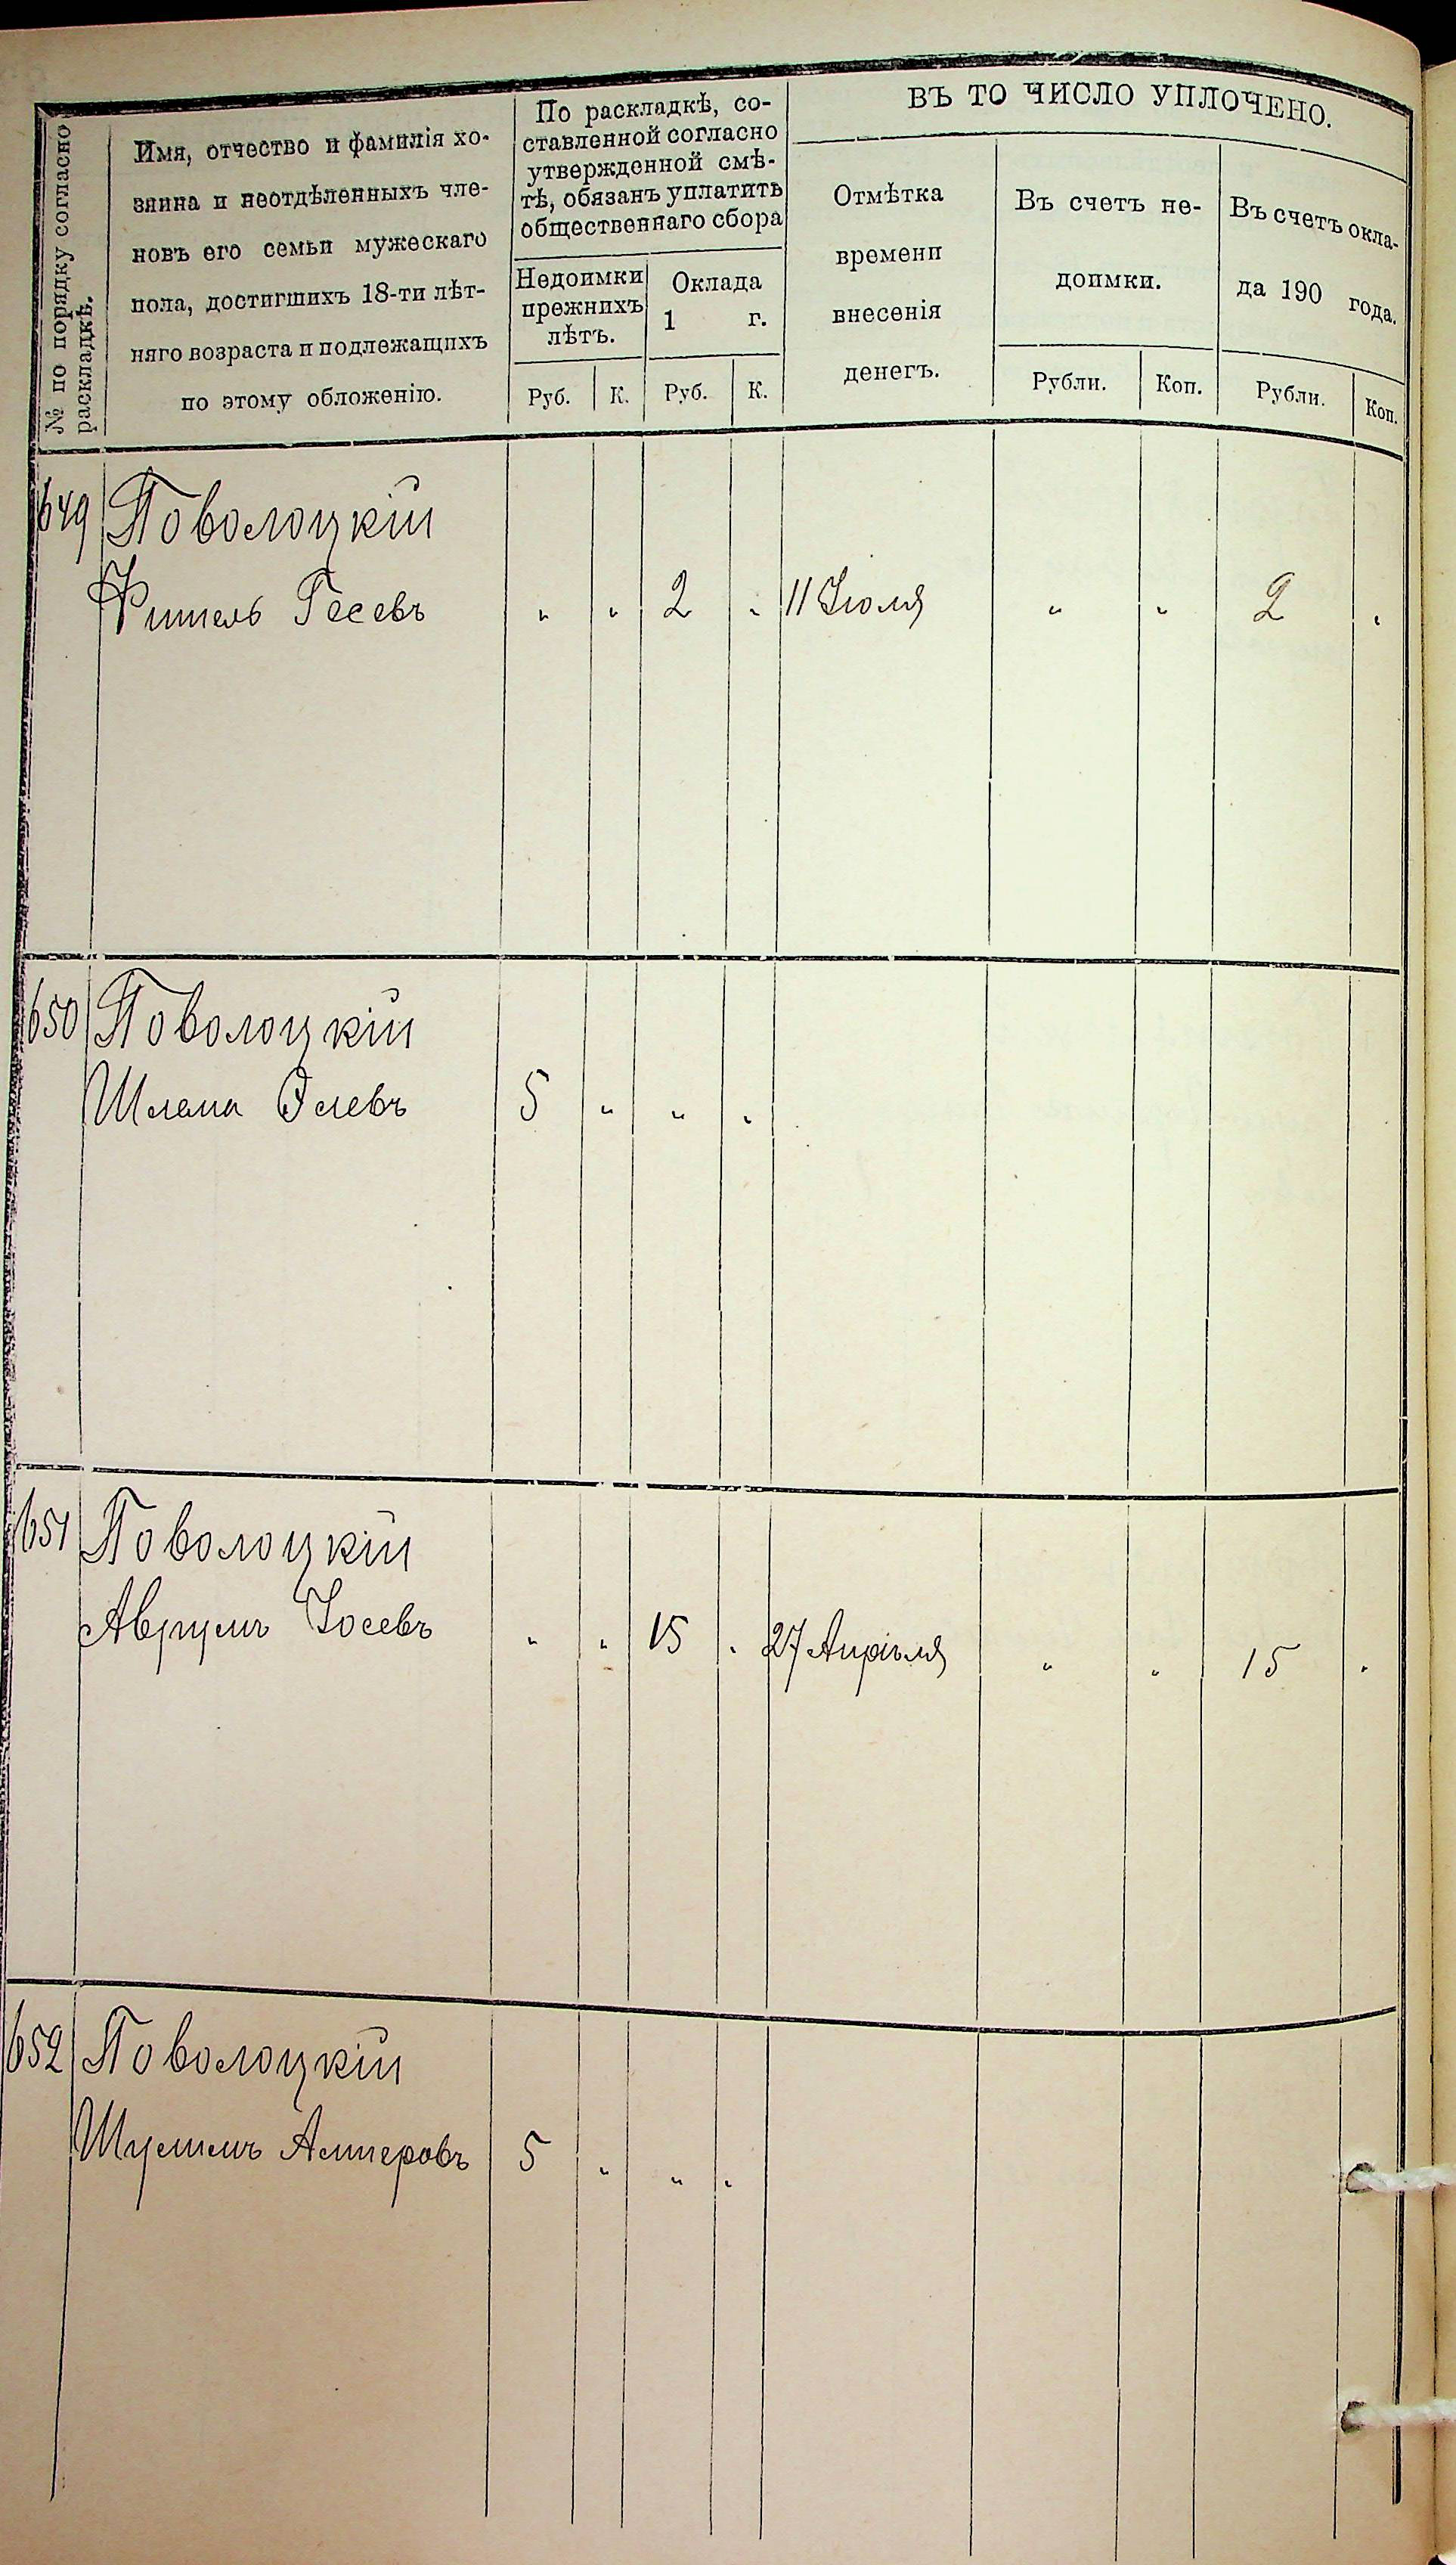 № по порядку согласно
раскладкѣ.
Имя, отчество и фамилія хо-
зяина и неотдѣленныхъ чле-
новъ его семьи мужескаго
пола, достигшихъ 18-ти лѣт-
няго возраста и подлежащихъ
по этому обложенію.
По раскладкѣ, со-
ставленной согласно
утвержденной смѣ-
тѣ, обязанъ уплатить
общественнаго сбора
Недоимки
прежнихъ
лѣтъ.
Оклада
1 г.
Руб. К. Руб. К.
ВЪ ТО ЧИСЛО УПЛОЧЕНО.
Отмѣтка
времени
внесенія
денегъ.
Въ счетъ не-
доимки.
Рубли. Коп.
Въ счетъ окла-
да 190 года.
Рубли. Коп.
649 Поволоцкій
Фишель " " 2 " 11 Іюля " " 2 "
650 Поволоцкій
Шлема 5 " " "
651 Поволоцкій
Аврумъ Іосевъ " " 15 " 27 Апрѣля " " 15 "
652 Поволоцкій
Шулимъ 5 " " "